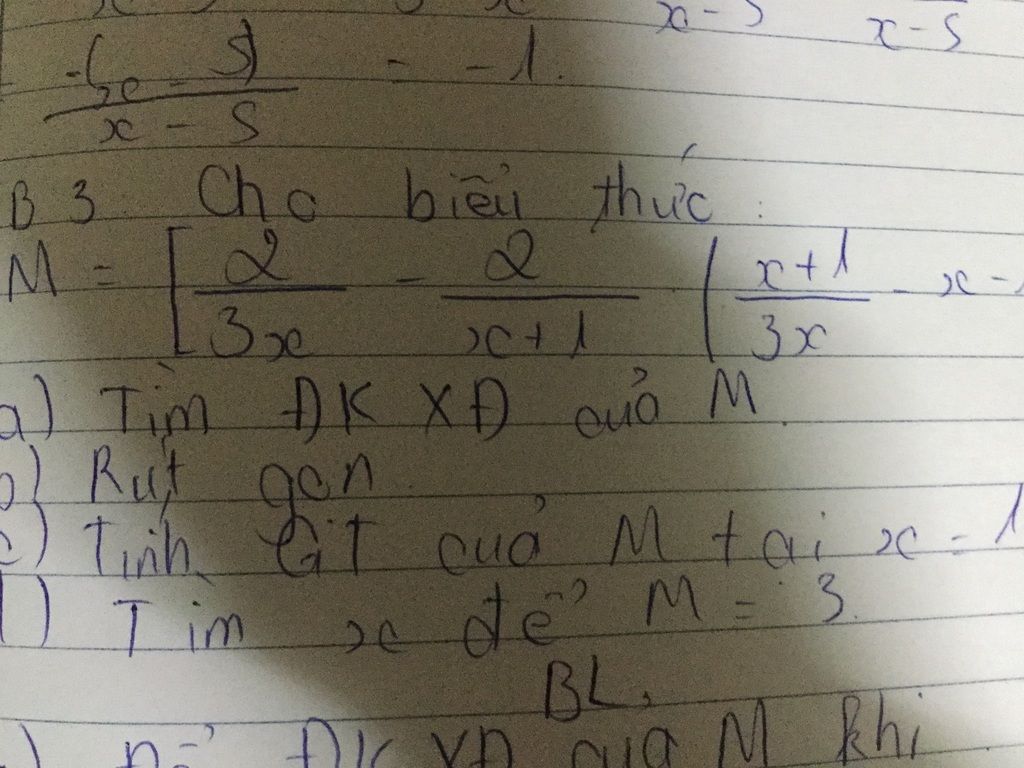 x - 5 x - 5
-(x - 5) / x - 5 = -1.
B 3 Cho biểu thức :
M = [ 2 / 3x - 2 / x+1 . ( x+1 / 3x - x -
a) Tìm ĐK XĐ của M.
b) Rút gọn.
c) Tính GT của M tại x = 1
d) Tìm x để M = 3.
BL.
ĐK XĐ của M khi